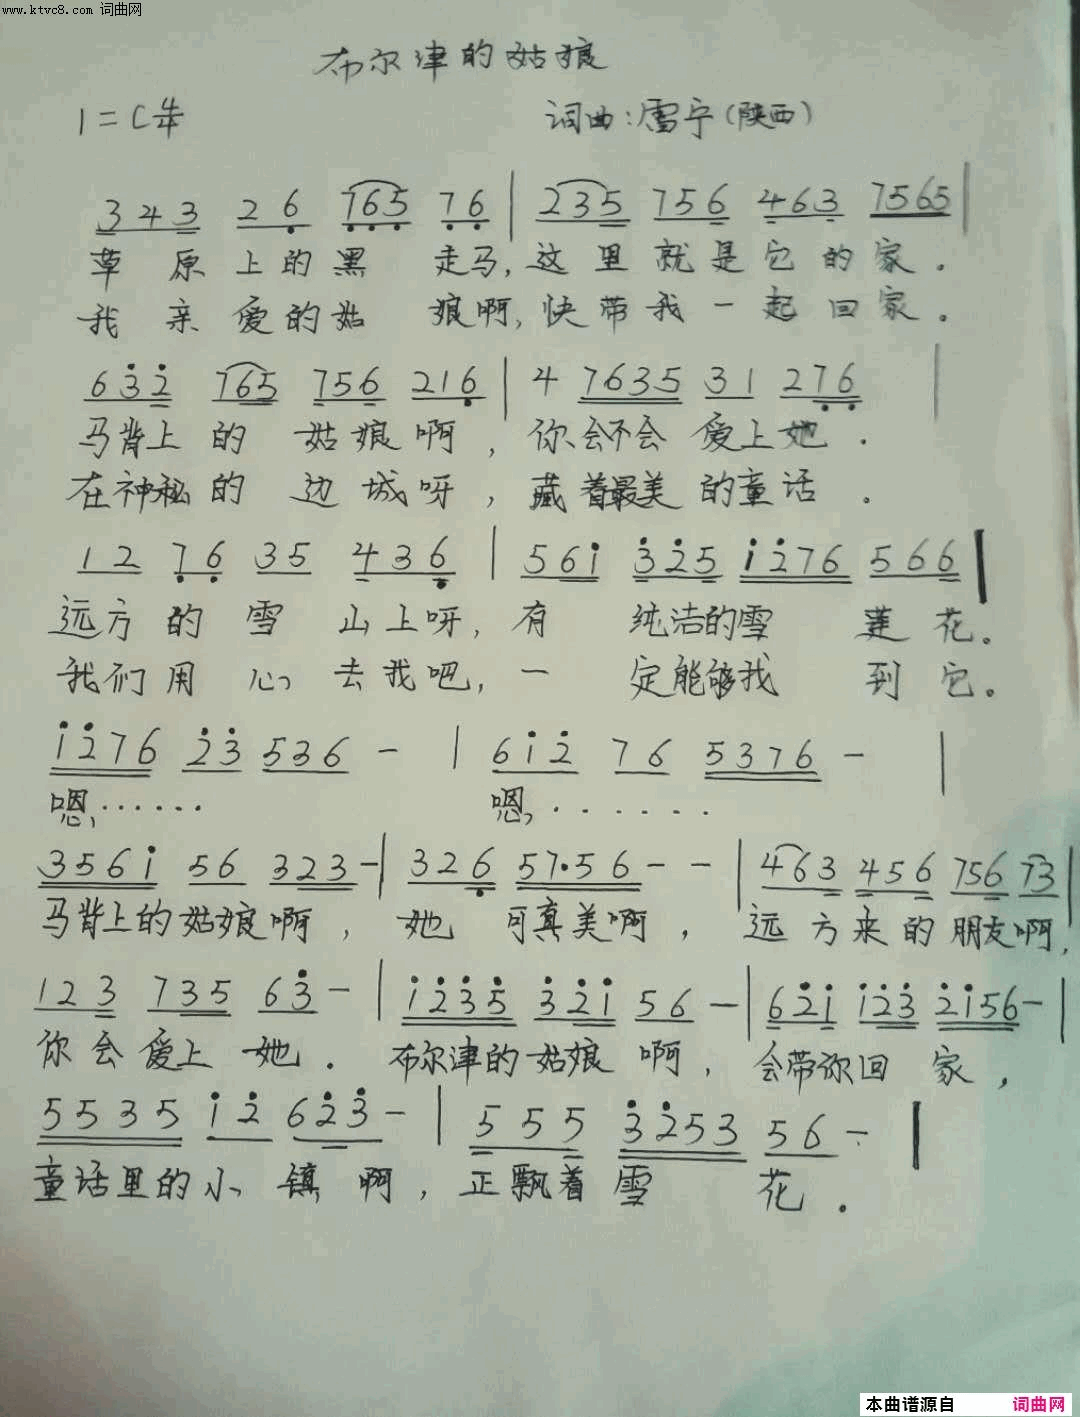 www.ktvc8.com 词曲网
布尔津的姑娘
1=C 4/4 词曲:雪宁(陕西)
3 4 3 2 6 7 6 5 7 6 | 2 3 5 7 5 6 4 6 3 7 5 6 5 |
草原上的黑走马,这里就是它的家.
我亲爱的姑娘啊,快带我一起回家.
6 3 2 7 6 5 7 5 6 2 1 6 | 4 7 6 3 5 3 1 2 7 6 |
马背上的姑娘啊,你会不会爱上她.
在神秘的边城呀,藏着最美的童话.
1 2 7 6 3 5 4 3 6 | 5 6 1 3 2 5 1 2 7 6 5 6 6 |
远方的雪山上呀,有纯洁的雪莲花.
我们用心去找吧,一定能够找到它.
1 2 7 6 2 3 5 3 6 - | 6 1 2 7 6 5 3 7 6 - |
嗯,······ 嗯,·······
3 5 6 1 5 6 3 2 3 - | 3 2 6 5 7·5 6 - - | 4 6 3 4 5 6 7 5 6 7 3 |
马背上的姑娘啊,她可真美啊,远方来的朋友啊,
1 2 3 7 3 5 6 3 - | 1 2 3 5 3 2 1 5 6 - | 6 2 1 1 2 3 2 1 5 6 - |
你会爱上她.布尔津的姑娘啊,会带你回家,
5 5 3 5 1 2 6 2 3 - | 5 5 5 3 2 5 3 5 6 - |
童话里的小镇啊,正飘着雪花.
本曲谱源自 词曲网